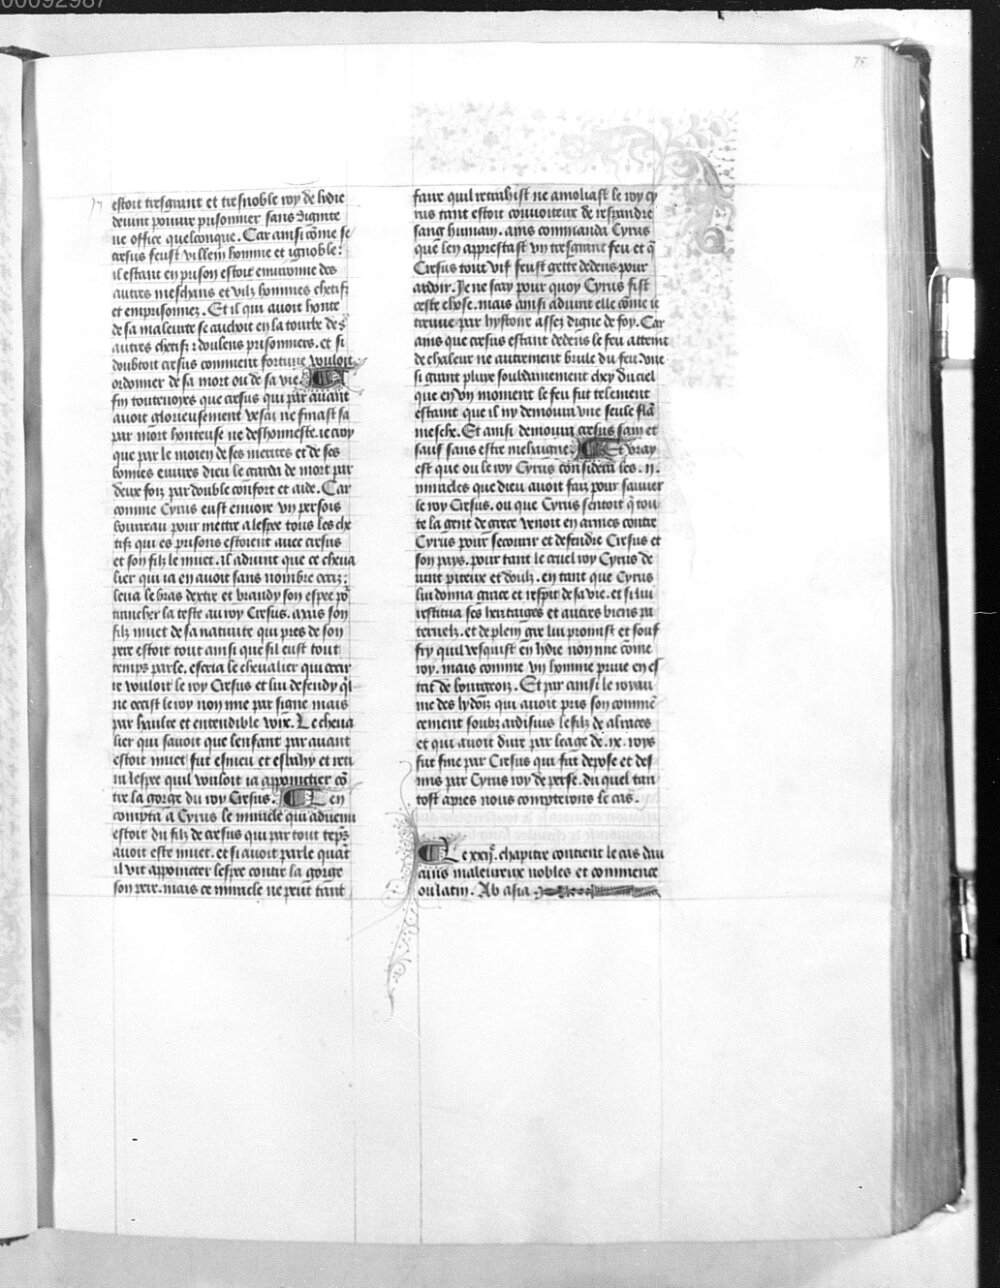 00092987
75
estoit tresgrant et tresnoble roy de lidie
deuint pouure prisonnier sans dignite
ne office quelconque. Car ainsi cõme se
cresus feust villein homme et ignoble:
il estant en prison estoit enuironne des
autres meschans et vilz hommes chetifz
et emprisonnez. Et il qui auoit honte
de sa maleurte se mucboit en la tourbe des
autres chetifz et doulens prisonniers. et si
doubtoit cresus comment fortune vouloit
ordonner de sa mort ou de sa vie. A
fin touteuoies que cresus qui par auant
auoit glorieusement vescu ne finast sa
par mort honteuse ne deshonneste. ie croy
que par le moien de ses merites et de ses
bonnes euures dieu le garda de mort par
deux foiz par double confort et aide. Car
comme Cyrus eust enuoie vn persois
bourreau pour mettre a lespee tous les che
tifz qui es prisons estoient auec cresus
et son filz le muet. il aduint que ce cheua
lier qui ia en auoit sans nombre occiz:
leua le bras dextre et brandy son espee põ
trancher la teste au roy Cresus. mais son
filz muet de sa natiuite qui pres de son
pere estoit tout ainsi que sil eust tout
temps parle. escria le chevalier qui occir
re vouloit le roy Cresus et lui defendy ql
ne occist le roy non mie par signe mais
par haulte et entendible voix. Le cheua
lier qui sauoit que lenfant par auant
estoit muet fut esmeu et esbahy et reti
ra lespee quil vouloit ia appointier cõ
tre la gorge du roy Cresus. Len
compta a Cyrus le miracle qui aduenu
estoit du filz de cresus qui par tout teps
auoit este muet. et si auoit parle quãt
il vit appointer lespee contre la gorge
son pere. mais ce miracle ne peut tant
faire quil retrahist ne amoliast le roy cy
rus tant estoit conuoiteux de respandre
sang humain. ains commanda Cyrus
que len apprestast vn tresgrant feu et q̃
Cresus tout vif feust gette dedens pour
ardoir. Je ne scay pour quoy Cyrus fist
ceste chose. mais ainsi aduint elle cõme ie
treuue par hystoire assez digne de foy. Car
ains que cresus estant dedens le feu atteint
de chaleur ne autrement brule du feu vne
si grant pluye souldainement chey du ciel
que en vn moment le feu fut telement
estaint que il ny demoura vne seule flã
mesche. Et ainsi demoura cresus sain et
sauf sans estre mehaigne. Et vray
est que ou le roy Cyrus considera les .ij.
miracles que dieu auoit faiz pour sauuer
le roy Cresus. ou que Cyrus sentoit q̃ tou
te la gent de grece venoit en armes contre
Cyrus pour secourir et defendre Cresus et
son pays. pour tant le cruel roy Cyrus de
uint piteux et doulz. en tant que Cyrus
lui donna grace et respit de sa vie. et si lui
restitua ses heritaiges et autres biens pa
ternelz. et de plein gre lui promist et souf
fry quil vesquist en lydie non mie cõme
roy. mais comme vn homme priue en es
tat de bourgeois. Et par ainsi le royau
me des lydois qui auoit pris son comme
cement soubz ardisius le filz de alcaces
et qui auoit dure par leage de .ix. roys
fut fine par Cresus qui fut depose et des
mis par Cyrus roy de perse. du quel tan
tost apres nous compterons le cas.
Le xxij. chapitre contient le cas dau
cuns maleureux nobles et commence
ou latin. Ab asia